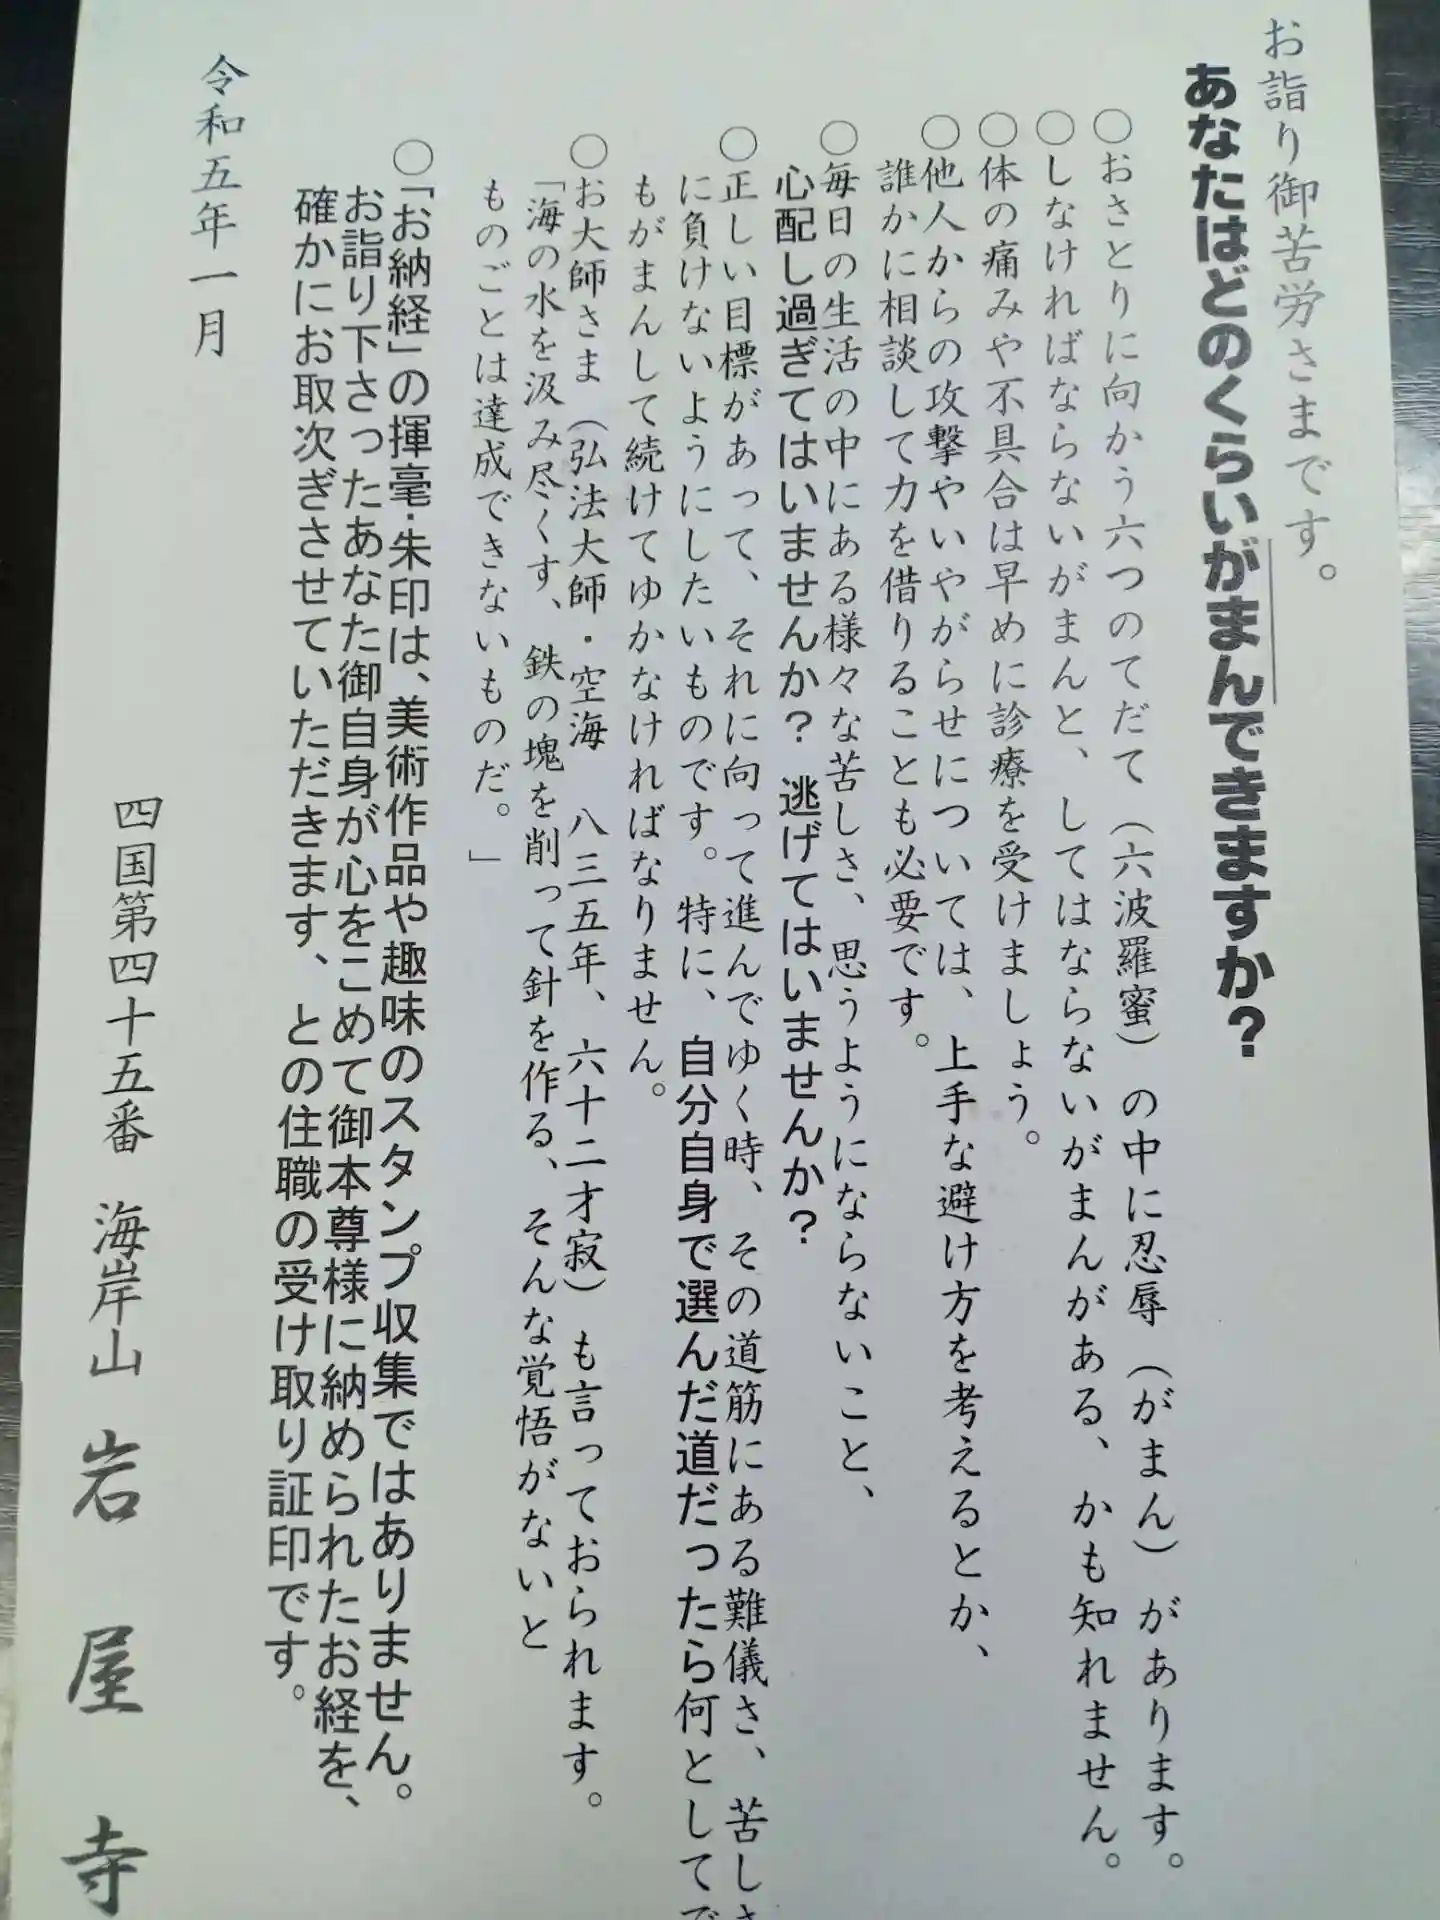 お詣り御苦労さまです。
あなたはどのくらいがまんできますか?
○おさとりに向かう六つのてだて(六波羅蜜)の中に忍辱(がまん)があります。
○しなければならないがまんと、してはならないがまんがある、かも知れません。
○体の痛みや不具合は早めに診療を受けましょう。
○他人からの攻撃やいやがらせについては、上手な避け方を考えるとか、
誰かに相談して力を借りることも必要です。
○毎日の生活の中にある様々な苦しさ、思うようにならないこと、
心配し過ぎてはいませんか?逃げてはいませんか?
○正しい目標があって、それに向って進んでゆく時、その道筋にある難儀さ、苦しさ
に負けないようにしたいものです。特に、自分自身で選んだ道だったら何としてで
もがまんして続けてゆかなければなりません。
○お大師さま(弘法大師・空海 八三五年、六十二才寂)も言っておられます。
「海の水を汲み尽くす、鉄の塊を削って針を作る、そんな覚悟がないと
ものごとは達成できないものだ。」
○「お納経」の揮毫・朱印は、美術作品や趣味のスタンプ収集ではありません。
お詣り下さったあなた御自身が心をこめて御本尊様に納められたお経を、
確かにお取次ぎさせていただきます、との住職の受け取り証印です。
令和五年一月
四国第四十五番 海岸山 岩屋寺